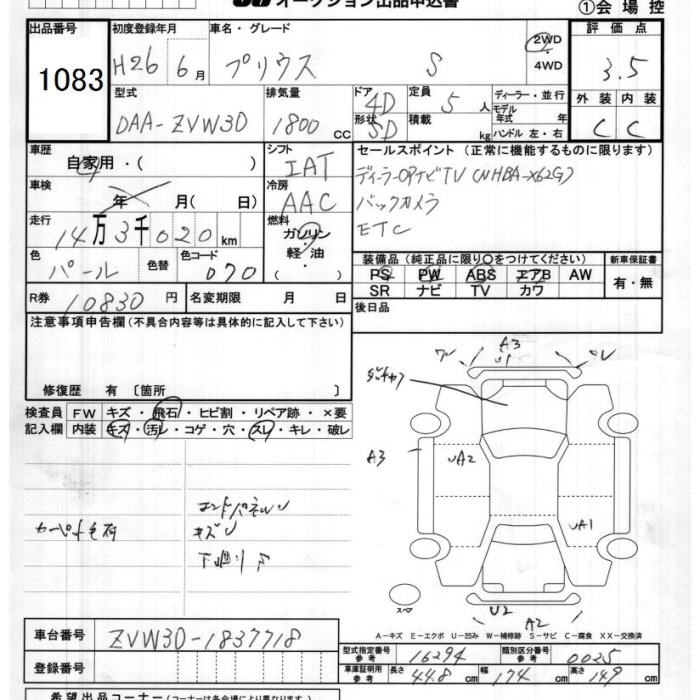 オークション出品申込書
①会場控
出品番号 初度登録年月 車名・グレード 評価点
1083 H26 6月 プリウス S 2WD 4WD 3.5
型式 排気量 ドア 形状 定員 積載 ディーラー・並行 外装 内装
DAA-ZVW30 1800cc 4D 5D 5人 kg モデル年式 年 ハンドル 左・右 C C
車歴 自家用・( ) シフト IAT
セールスポイント (正常に機能するものに限ります)
車検 年 月( 日) 冷房 AAC
ディーラーOPナビTV (NHBA-X62G)
バックカメラ
ETC
走行 14万3千020km 燃料 ガソリン・軽油・( )
色 パール 色替 色コード 070
装備品 (純正品に限り○をつけてください) 新車保証書
PS PW ABS エアB AW 有・無
SR ナビ TV カワ
R券 10830円 名変期限 月 日 後日品
注意事項申告欄 (不具合内容等は具体的に記入して下さい)
修復歴 有 〔箇所 〕
検査員 FW キズ・飛石・ヒビ割・リペア跡・×要
記入欄 内装 キズ・汚レ・コゲ・穴・スレ・キレ・破レ
A3
U1
A3 UA2
UA1
カーペット
キズ
U2
A2
スペア
A-キズ E-エクボ U-凹み W-補修跡 S-サビ C-腐食 XX-交換済
車台番号 ZVW30-1837718
型式指定番号 参考 16294 類別区分番号 参考 0025
登録番号
車庫証明用 参考 長さ 448cm 幅 174cm 高さ 149cm
希望出品コーナー (コーナーは各会場により異なります)